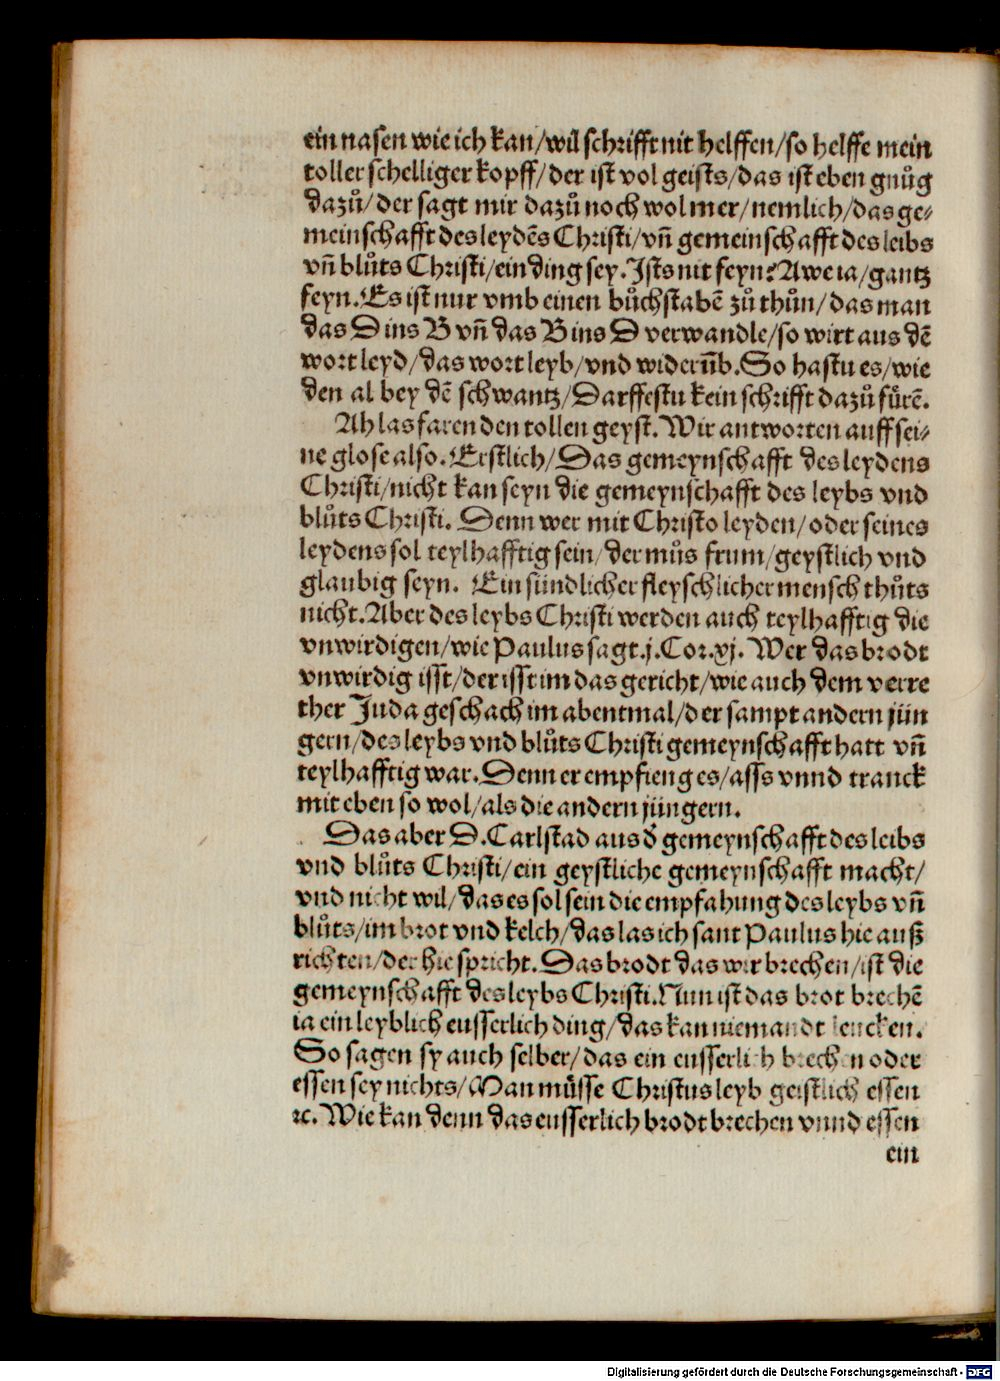 ein nasen wie ich kan/wil schrifft nit helffen/so helffe mein
toller schelliger kopff/der ist vol geists/das ist eben gnůg
dazů/der sagt mir dazů noch wol mer/nemlich/das ge⸗
meinschafft des leydēs Christi/vñ gemeinschafft des leibs
vñ blůts Christi/ein ding sey. Ists nit feyn? Awe ia/gantz
feyn. Es ist nur vmb einen bůchstabē zů thůn/das man
das D ins B vñ das B ins D verwandle/so wirt aus dē
wort leyd/das wort leyb/vnd widerum̄b. So hastu es/wie
den al bey dē schwantz/Darffestu kein schrifft dazů fůrē.
Ah las faren den tollen geyst. Wir antworten auff sei⸗
ne glose also. Erstlich/Das gemeynschafft des leydens
Christi/nicht kan seyn die gemeynschafft des leybs vnd
blůts Christi. Denn wer mit Christo leyden/oder seines
leydens sol teylhafftig sein/der můs frum/geystlich vnd
glaubig seyn. Ein sündlicher fleyschlicher mensch thůts
nicht. Aber des leybs Christi werden auch teylhafftig die
vnwirdigen/wie Paulus sagt. j. Cor. xj. Wer das brodt
vnwirdig isst/der isst im das gericht/wie auch dem verre
ther Juda geschach im abentmal/der sampt andern jün
gern/des leybs vnd blůts Christi gemeynschafft hatt vñ
teylhafftig war. Denn er empfieng es/asss vnnd tranck
mit eben so wol/als die andern jüngern.
Das aber D. Carlstad aus d̕ gemeynschafft des leibs
vnd blůts Christi/ein geystliche gemeynschafft macht/
vnd nicht wil/das es sol sein die empfahung des leybs vñ
blůts/im brot vnd kelch/das las ich sant Paulus hie auß
richten/der hie spricht. Das brodt das wir brechen/ist die
gemeynschafft des leybs Christi. Nun ist das brot brechē
ia ein leyblich eusserlich ding/das kan niemandt leucken.
So sagen sy auch selber/das ein eusserlich brechen oder
essen sey nichts/Man můsse Christus leyb geistlich essen
ꝛc. Wie kan denn das eusserlich brodt brechen vnnd essen
ein
Digitalisierung gefördert durch die Deutsche Forschungsgemeinschaft - DFG